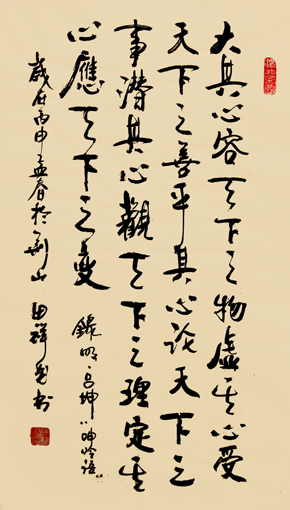 大其心容天下之物虚其心受
天下之善平其心论天下之
事潜其心觀天下之理定其
心應天下之變
錄明·吕坤"呻吟语"
歲在丙申孟春於荆山 田祥